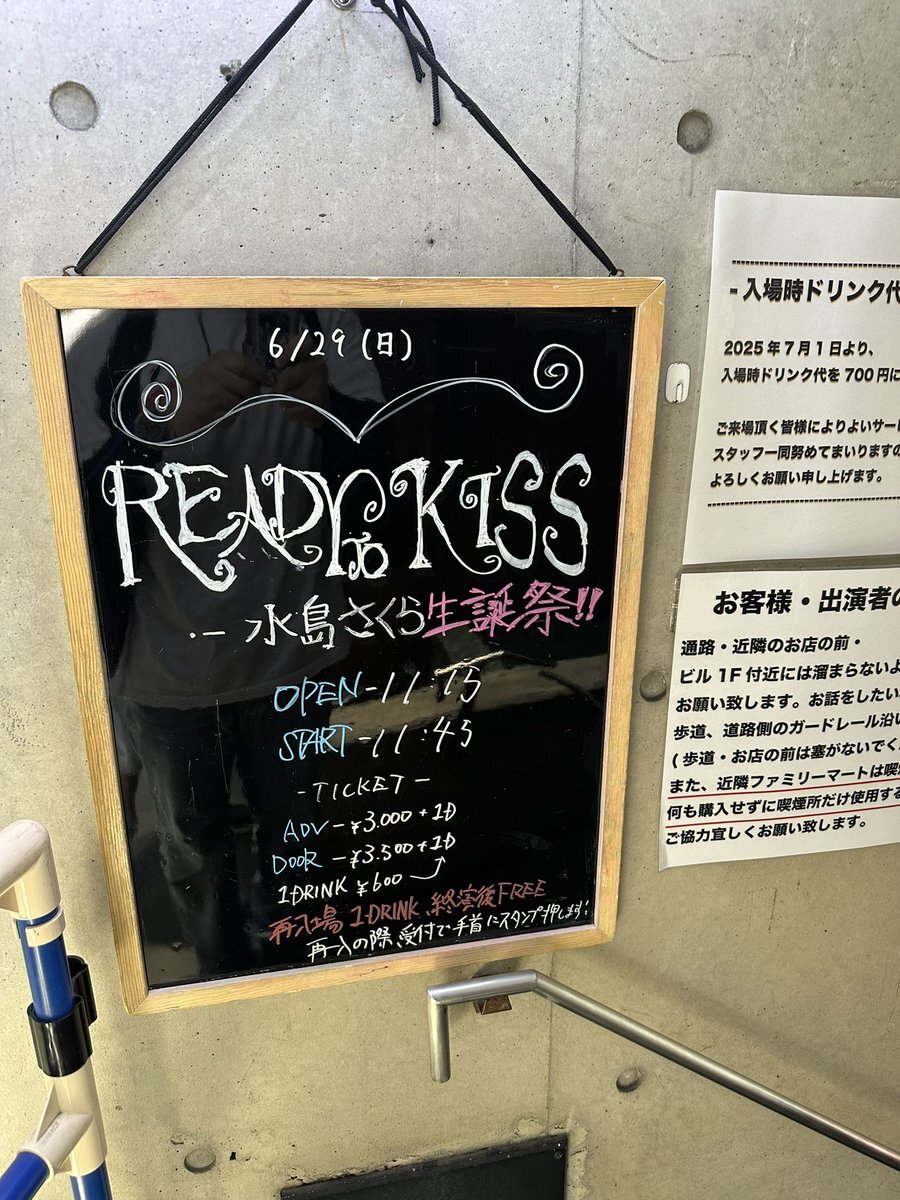 6/29(日)
READY TO KISS
·— 水島さくら生誕祭!!
OPEN-11:15
START-11:45
-TICKET-
ADV-¥3.000+1D
DOOR-¥3.500+1D
1-DRINK ¥600
再入場 1-DRINK、終演後FREE
再入の際、受付で手首にスタンプ押します!
-入場時ドリンク代
2025年7月1日より、
入場時ドリンク代を700円に
ご来場頂く皆様によりよいサー
スタッフ一同努めてまいりますの
よろしくお願い申し上げます。
お客様・出演者の
通路・近隣のお店の前・
ビル1F付近には溜まらないよ
お願い致します。お話をしたい
歩道、道路側のガードレール沿い
(歩道・お店の前は塞がないでく
また、近隣ファミリーマートは喫
何も購入せずに喫煙所だけ使用する
ご協力宜しくお願い致します。